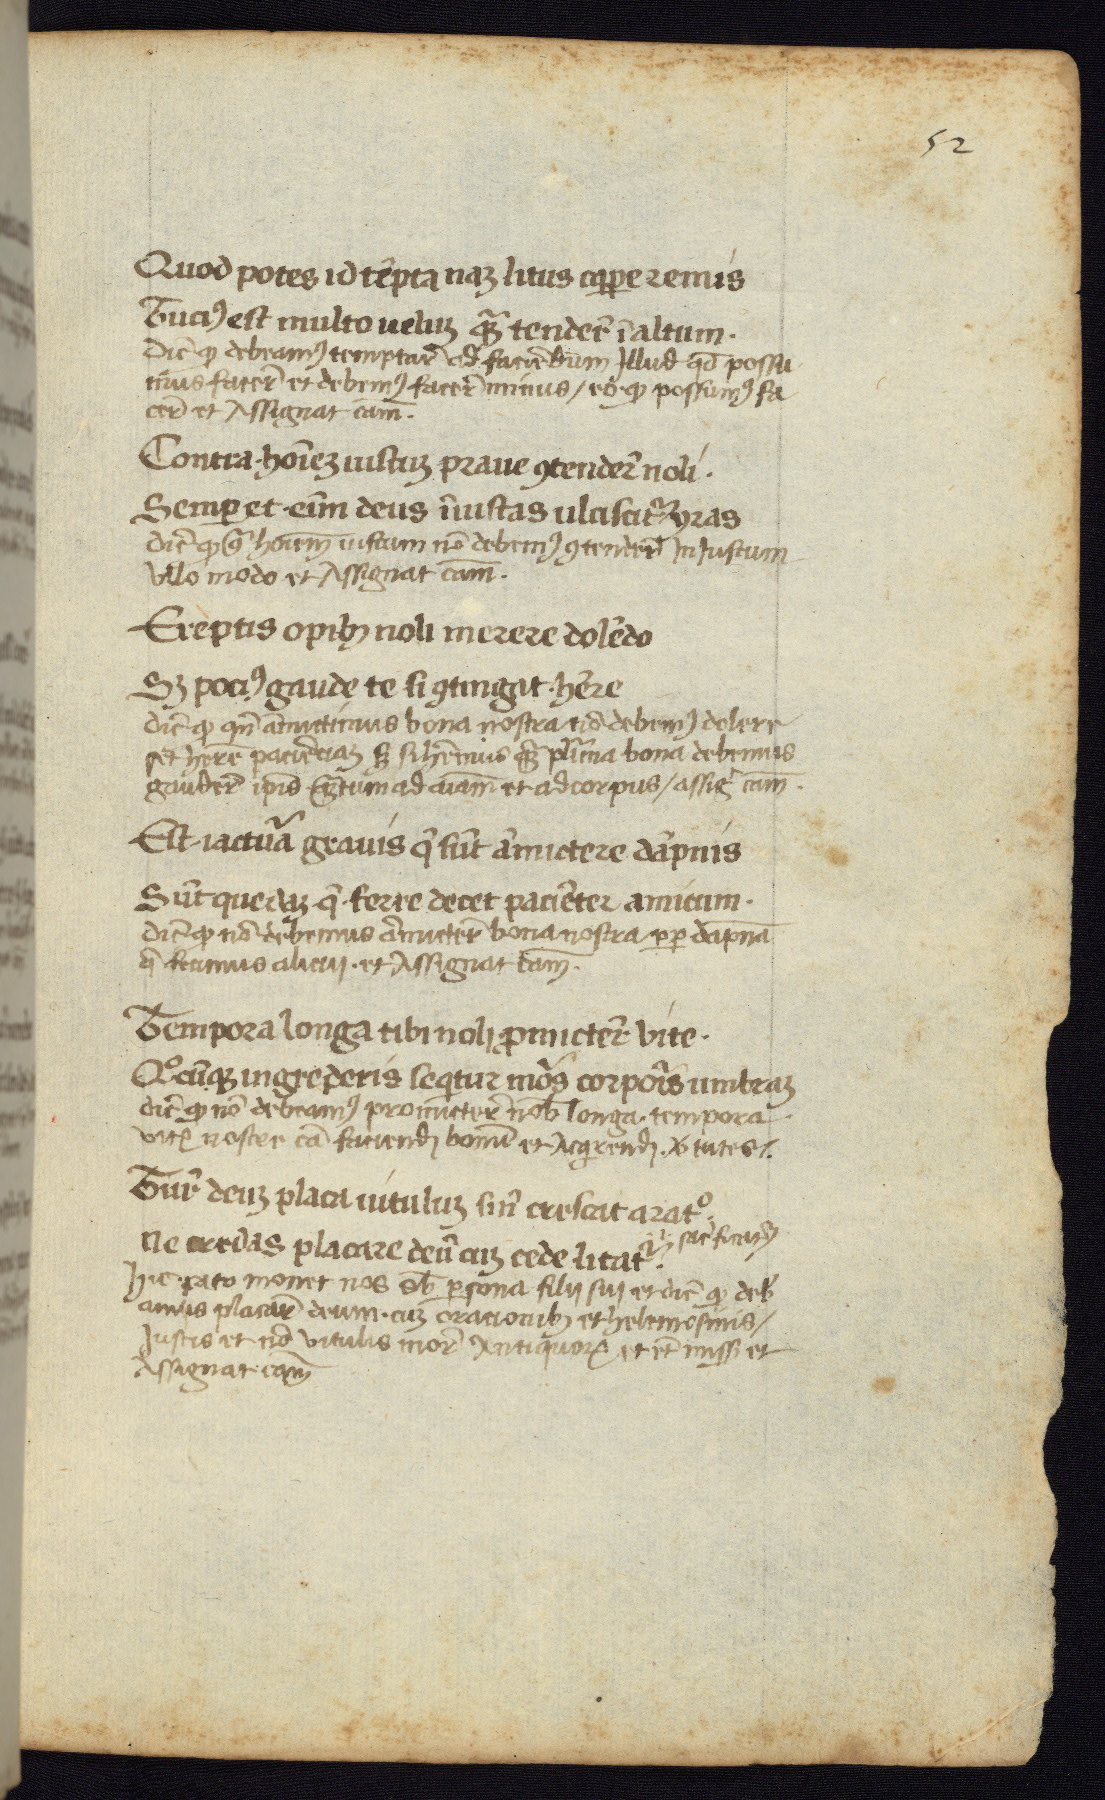 52
Quod potes id tēpta naꝫ litus carpere remis
Tuciꝰ est multo veluꝫ qᷓꝫ tenderē ī altum.
Dic̄ ꝙ debeamꝰ temptare ad faciēdum Illud qd̄ possu
mus facer̄ et debemꝰ facer̄ minus / eo ꝙ possumꝰ fa
cer̄ et Assignat cām.
Contra hoīeꝫ iustuꝫ praue ꝯtender̄ noli.
Semper et eīm deus īiustas ulciscit᷑ yras
Dic̄ ꝙ ꝯᷓ hoīem iustum nō debemꝰ ꝯtender̄ Iniustum
Vllo modo et Assignat cām.
Ereptis opibꝫ noli merere dolēdo
Sꝫ pociꝰ gaude te si ꝯtingat hēre
Dic̄ ꝙ qn̄ amittimus bona nostra nō debemꝰ dolere
set hēre paciēciaꝫ sꝫ si hēmus plīma bona debemus
gauder̄ ip̄is qᷓꝫtum ad aīam et ad corpus / assig᷑ cām.
Est iactur̄a grauis q̄ sūt amictere dāpnis
Sūt quedaꝫ q̄ ferre decet paciēter amicum.
Dic̄ ꝙ nō debemus amicter̄ bona nostra ꝓp dāpna
q̄ fecimus alicui. et Assignat cām.
Tempora longa tibi noli ꝓmicter̄ vite.
Qᵒcūqꝫ ingrederis seqtur mōs corporis umbraꝫ
Dic̄ ꝙ nō debeamꝰ promicter̄ nob̄ longa tempora
vitę nostre cā faciendi bonū et Acq̇rendi v̓tutes /.
Tur̄ deuꝫ placa vituluꝫ sin̄ crescat aratᵒ.
Ne credas placare deū cuꝫ cede litat᷑. sacrificat᷑
Hic Cato monet nos sb̄ ꝑsona filij sui et dic̄ ꝙ deb̓
amus placar̄ deum cuꝫ oracionibꝫ et helemosinis /
Iustis et nō vitulis mor̄ Antiquorꝝ et cet̄ missis et
Assignat cām